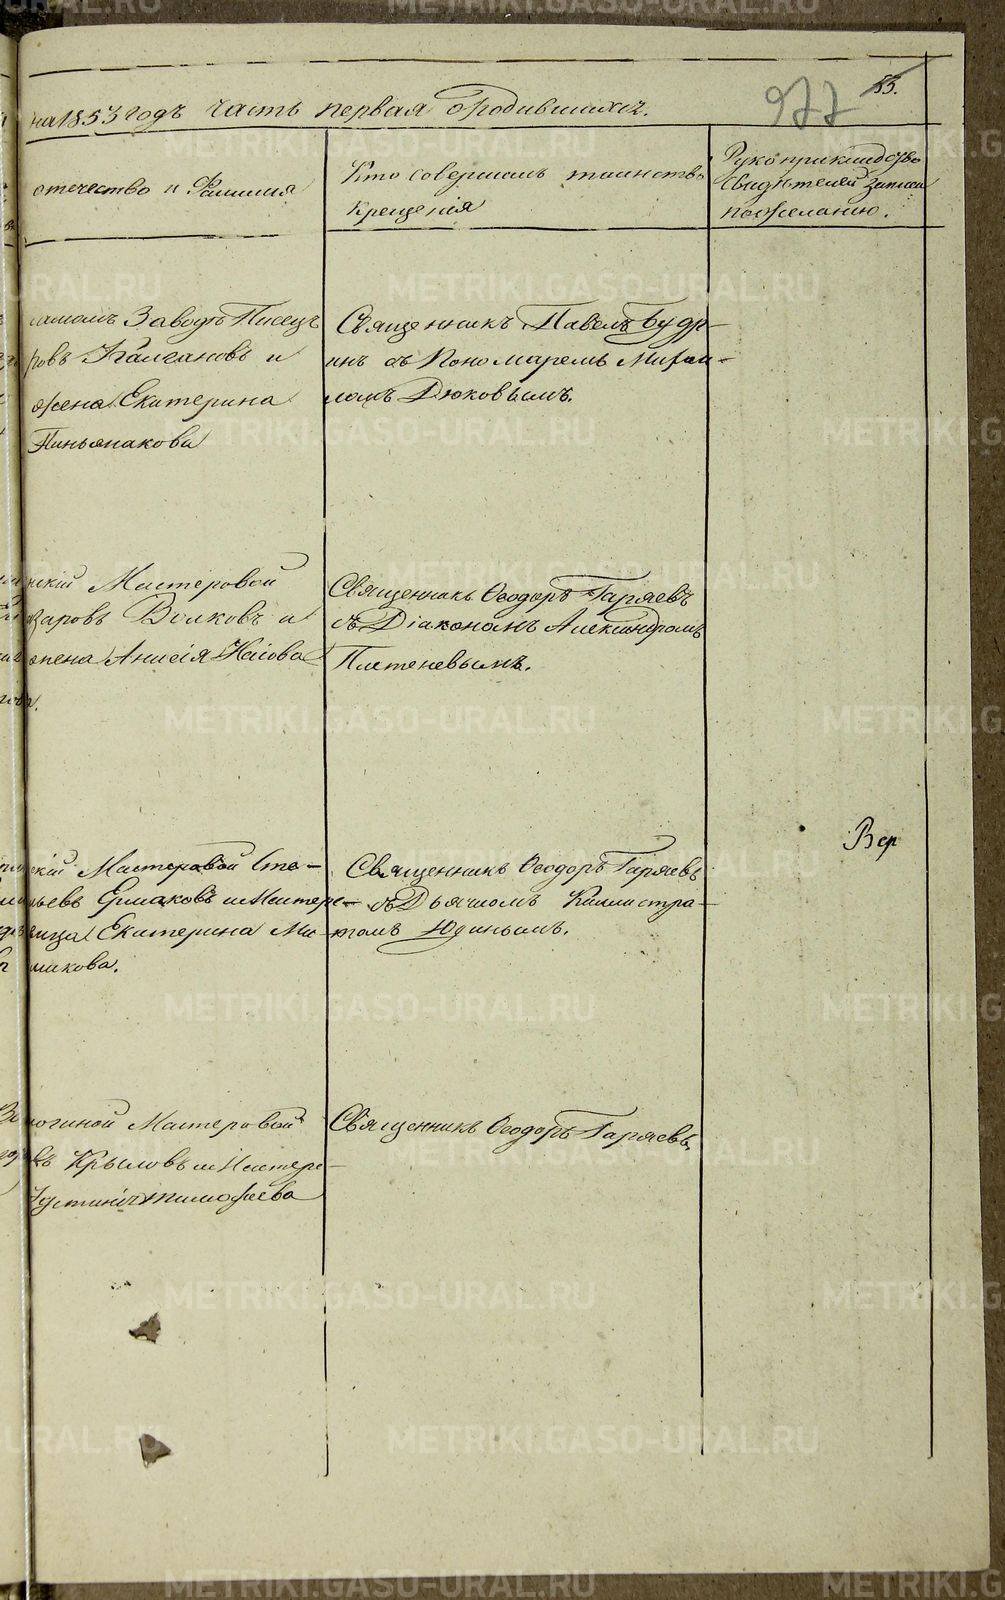 на 1853 годъ часть первая о родившихся.
977
53.
отечество и Фамилия
Кто совершалъ таинство
крещенія
Рукоприкладство
свидѣтелей записи
по желанію.
Заводѣ Писецъ
ровъ и
жена Екатерина
Священникъ Павелъ Будр-
инъ съ Пономаремъ Михаи-
ломъ Дюковымъ.
нскій Мастеровой
заровъ Волковъ и
жена Анисія
Священникъ Ѳеодоръ Гаряевъ
съ Діакономъ Александромъ
Плетеневымъ.
скій Мастеровой Сте-
ьевъ Ермаковъ и Мастеро-
вица Екатерина
макова.
Священникъ Ѳеодоръ Гаряевъ
съ Дьячкомъ Каллистра-
томъ Юдинымъ.
Вер
Мастеровой
въ Крыловъ и Мастеро-
Устинія Тимофеева
Священникъ Ѳеодоръ Гаряевъ.
METRIKI.GASO-URAL.RU